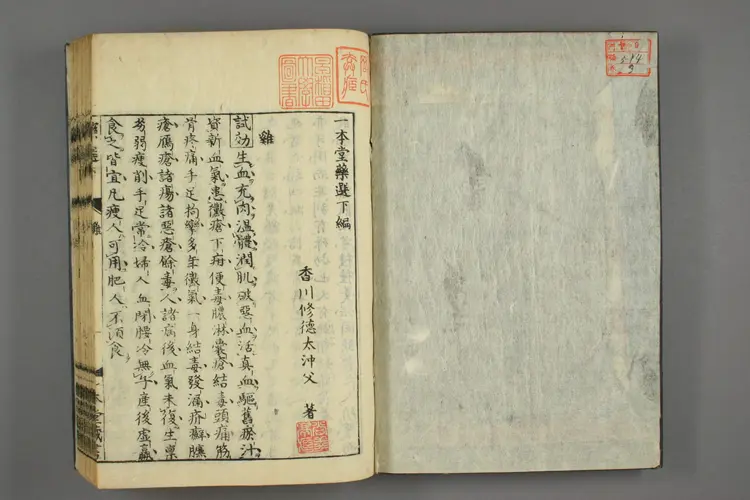 一本堂藥選下編
香川修德太沖父 著
雞
試効生血充肉溫體潤肌破惡血活真血驅舊瘀汁
資新血氣患黴瘡下疳便毒膿淋囊瘡結毒頭痛筋
骨疼痛手足拘攣多年黴氣一身結毒發漏疥癬臁
瘡癘瘡諸瘍諸惡瘡餘毒人諸病後血氣未復生稟
劣弱瘦削手足常冷婦人血閉腰冷無子産後虛羸
食之皆宜凡瘦人可用肥人不須食